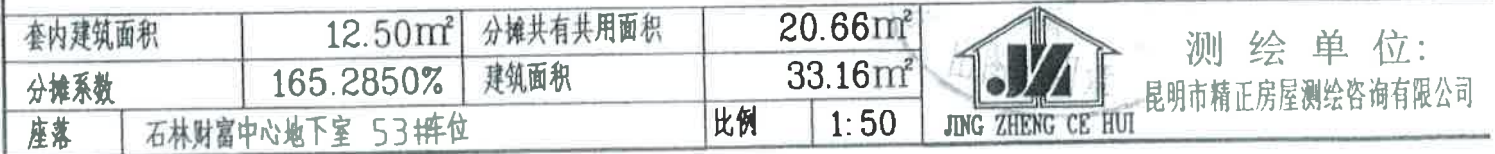 套内建筑面积 12.50m² 分摊共有共用面积 20.66m²
分摊系数 165.2850% 建筑面积 33.16m²
座落 石林财富中心地下室 53#车位 比例 1:50
JZ
JING ZHENG CE HUI
测绘单位:
昆明市精正房屋测绘咨询有限公司